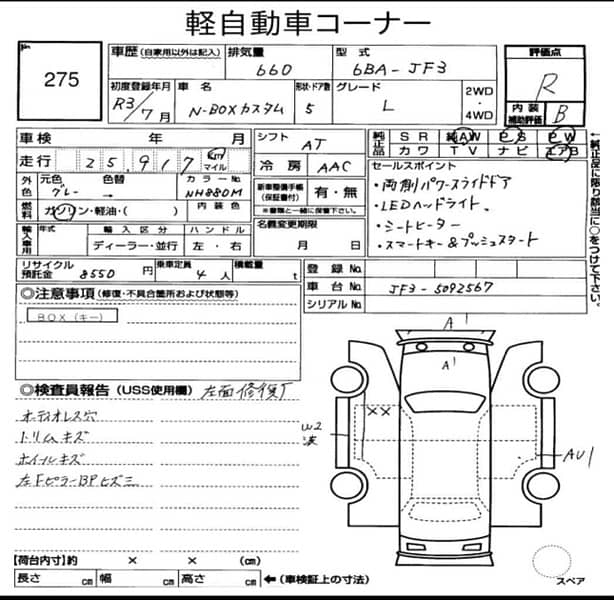 軽自動車コーナー
№ 275
車歴 (自家用以外は記入) 排気量 660 型式 6BA-JF3 評価点 R
初度登録年月 R3/7月 車名 N-BOXカスタム 形状・ドア数 5 グレード L 2WD・4WD 内装補助評価 B
車検 年 月 シフト AT 純正品 SR 純AW PS PW
走行 25,917 km マイル 冷房 AAC カワ TV ナビ エアB
外色 元色 グレー 色替 → カラーNo NH880M 新車整備手帳(保証書付) 有・無 ※書類と一緒に保管下さい。
燃料 ガソリン・軽油・( )
セールスポイント
・両側パワースライドドア
・LEDヘッドライト、
・シートヒーター
・スマートキー&プッシュスタート
輸入車用 年式 輸入区分 ディーラー・並行 ハンドル 左・右 名義変更期限 月 日
リサイクル預託金 8550円 乗車定員 4人 積載量 t
登録No.
車台No. JF3-5092567
シリアルNo.
↑純正品に限り該当に○をつけて下さい。
◎注意事項(修復・不具合箇所および状態等)
BOX(キー)
◎検査員報告(USS使用欄) 左面修復歴
オーディオレス穴
トリムキズ
ホイールキズ
左FピラーBPヒズミ
A1
A1
××
W2
波
AU1
スペア
【荷台内寸】約 × × (cm)
長さ cm 幅 cm 高さ cm ←(車検証上の寸法)